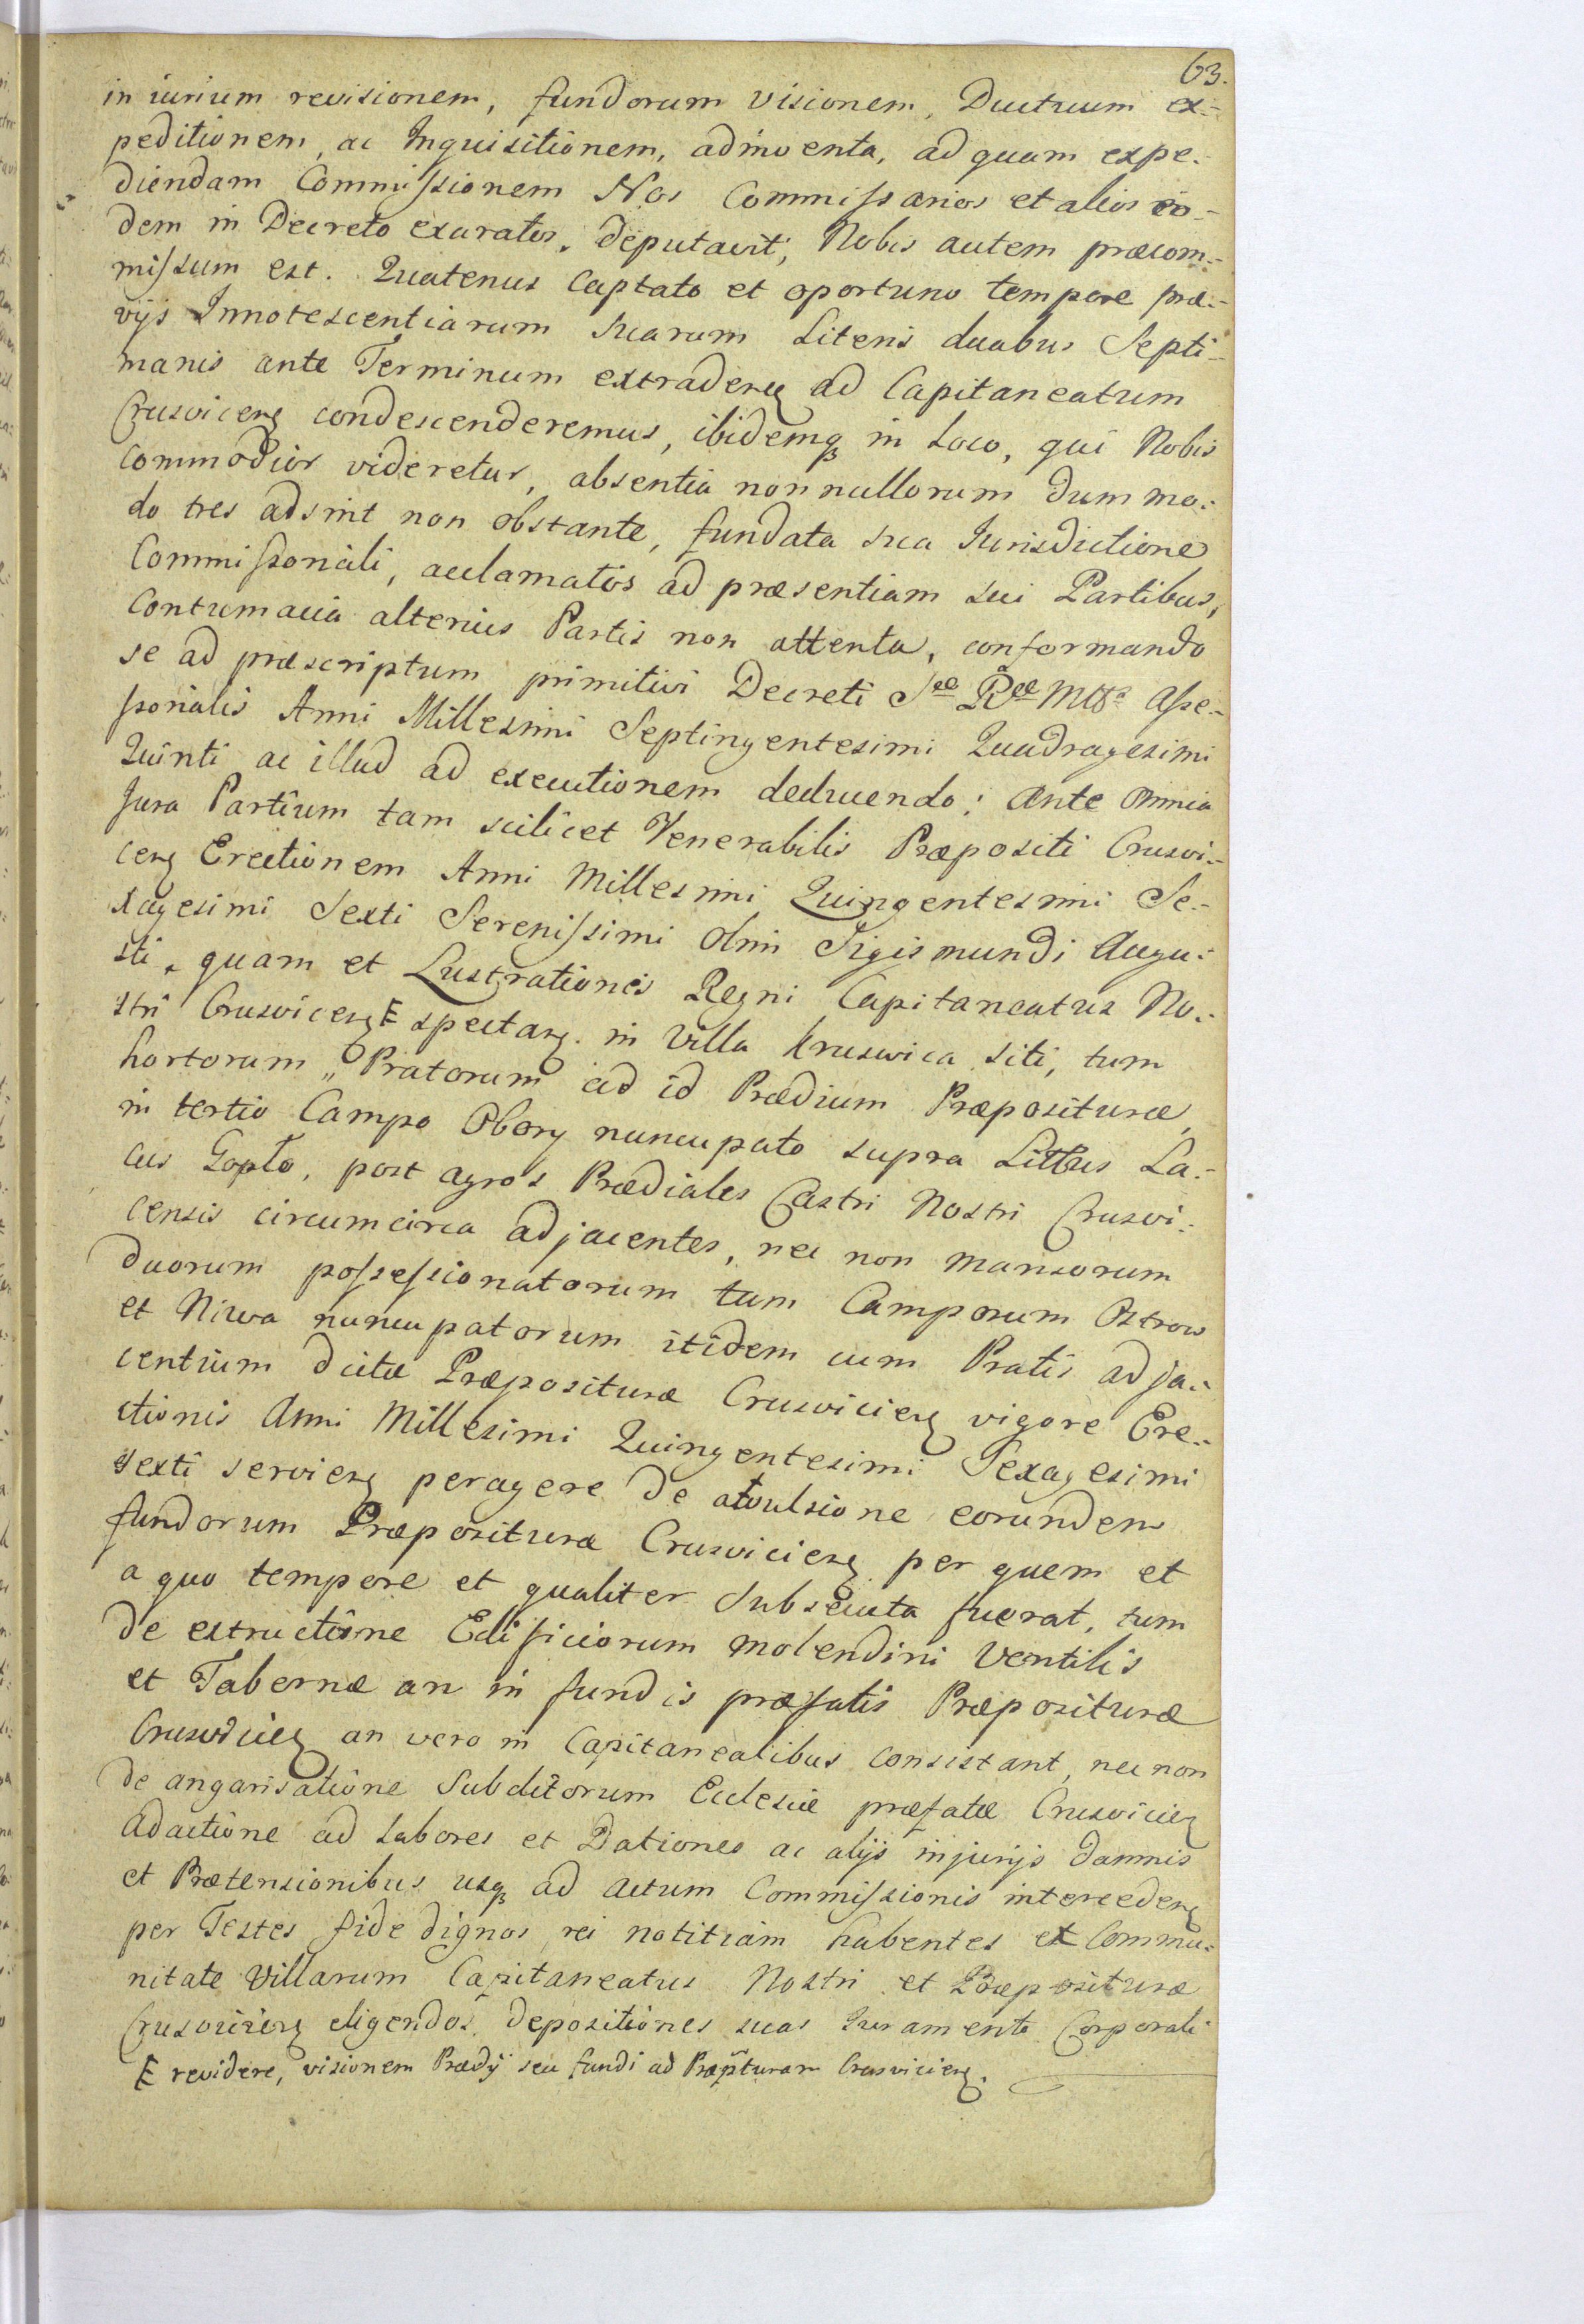 63.
in iurium revisionem, fundorum visionem, Ductuum ex-
peditionem, ac Inquisitionem, adinventa, ad quam expe-
diendam Commissionem Nos Commissarios et alios eo-
dem in Decreto exaratos, deputavit, Nobis autem præcom-
missum est. Quatenus captato et oportuno tempore præ-
vijs Innotescentiarum suarum Literis duabus Septi-
manis ante Terminum extraden ad Capitaneatum
Crusvicen condescenderemus, ibidemq in Loco, qui Nobis
commodior videretur, absentia nonnullorum dum mo-
do tres adsint non obstante, fundata sua Iurisdictione
Commissoriali, acclamatis ad præsentiam sui Partibus,
contumacia alterius Partis non attenta, conformando
se ad præscriptum primitivi Decreti Sæ Ræ Mttis Asse-
ssorialis Anni Millesimi Septingentesimi Quadragesimi
Quinti ac illud ad executionem deducendo; Ante omnia
Jura Partium tam scilicet Venerabilis Præpositi Crusvi-
cen Erectionem Anni Millesimi Quingentesimi Se-
xagesimi Sexti Serenissimi Olim Sigismundi Augu-
sti, quam et Lustrationes Regni Capitaneatus No-
stri Crusvicen E spectan. in Villa Kruswica siti, tum
hortorum, Pratorum ad id Prædium Præposituræ
in tertio Campo Obory nuncupato supra Littus La-
cus Goplo, post agros Prædiales Castri Nostri Crusvi-
censis circumcirca adjacentes, nec non mansorum
duorum possessionatorum tum Camporum Ostrow
et Niwa nuncupatorum itidem cum Pratis adja-
centium dictæ Præposituræ Crusvicien vigore Ere-
ctionis Anni Millesimi Quingentesimi Sexagesimi
Sexti servien peragere de avulsione eorundem
fundorum Præposituræ Crusvicien per quem et
a quo tempore et qualiter subsecuta fuerat, tum
de extructione Edificiorum molendini Ventilis
et Tabernæ an in fundis præfatis Præposituræ
Crusvicien an vero in Capitanealibus consistant, nec non
de angarisatione Subditorum Ecclesiæ præfatæ Crusvicien
adactione ad Labores et Dationes ac alijs injurijs damnis
et Prætensionibus usq ad actum Commissionis interceden
per Testes fide dignos rei notitiam habentes ex Commu-
nitate Villarum Capitaneatus Nostri et Præposituræ
Crusvicien eligendos, depositiones suas Iuramento Corporali
E revidere, visionem Prædij seu fundi ad Præpturam Crusvicien.